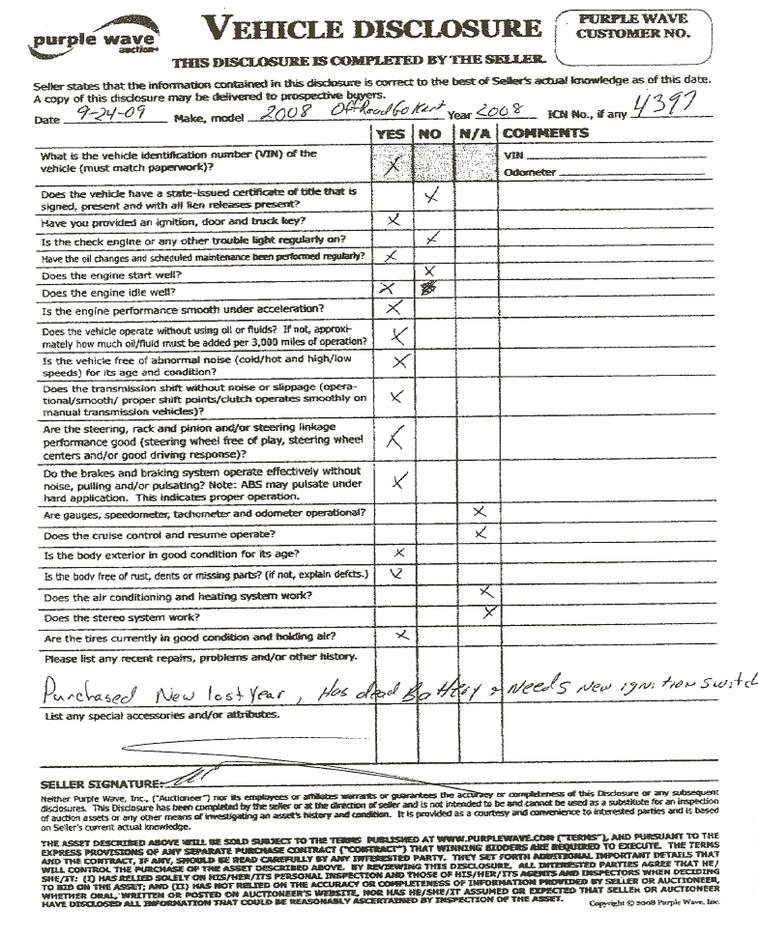 purple wave
auction
VEHICLE DISCLOSURE
THIS DISCLOSURE IS COMPLETED BY THE SELLER.
PURPLE WAVE
CUSTOMER NO.
Seller states that the information contained in this disclosure is correct to the best of Seller's actual knowledge as of this date.
A copy of this disclosure may be delivered to prospective buyers.
Date 9-24-09 Make, model 2008 Off Road Go Kart Year 2008 ICN No., if any 4397
YES NO N/A COMMENTS
What is the vehicle identification number (VIN) of the
vehicle (must match paperwork)? X
VIN
Odometer
Does the vehicle have a state-issued certificate of title that is
signed, present and with all lien releases present? X
Have you provided an ignition, door and truck key? X
Is the check engine or any other trouble light regularly on? X
Have the oil changes and scheduled maintenance been performed regularly? X
Does the engine start well? X
Does the engine idle well? X
Is the engine performance smooth under acceleration? X
Does the vehicle operate without using oil or fluids? If not, approxi-
mately how much oil/fluid must be added per 3,000 miles of operation? X
Is the vehicle free of abnormal noise (cold/hot and high/low
speeds) for its age and condition? X
Does the transmission shift without noise or slippage (opera-
tional/smooth/ proper shift points/clutch operates smoothly on
manual transmission vehicles)? X
Are the steering, rack and pinion and/or steering linkage
performance good (steering wheel free of play, steering wheel
centers and/or good driving response)? X
Do the brakes and braking system operate effectively without
noise, pulling and/or pulsating? Note: ABS may pulsate under
hard application. This indicates proper operation. X
Are gauges, speedometer, tachometer and odometer operational? X
Does the cruise control and resume operate? X
Is the body exterior in good condition for its age? X
Is the body free of rust, dents or missing parts? (if not, explain defcts.) X
Does the air conditioning and heating system work? X
Does the stereo system work? X
Are the tires currently in good condition and holding air? X
Please list any recent repairs, problems and/or other history.
Purchased New last year, Has dead Battery & Needs New ignition switch
List any special accessories and/or attributes.
SELLER SIGNATURE:
Neither Purple Wave, Inc., ("Auctioneer") nor its employees or affiliates warrants or guarantees the accuracy or completeness of this Disclosure or any subsequent
disclosures. This Disclosure has been completed by the seller or at the direction of seller and is not intended to be and cannot be used as a substitute for an inspection
of auction assets or any other means of investigating an asset's history and condition. It is provided as a courtesy and convenience to interested parties and is based
on Seller's current actual knowledge.
THE ASSET DESCRIBED ABOVE WILL BE SOLD SUBJECT TO THE TERMS PUBLISHED AT WWW.PURPLEWAVE.COM ("TERMS"), AND PURSUANT TO THE
EXPRESS PROVISIONS OF ANY SEPARATE PURCHASE CONTRACT ("CONTRACT") THAT WINNING BIDDERS ARE REQUIRED TO EXECUTE. THE TERMS
AND THE CONTRACT, IF ANY, SHOULD BE READ CAREFULLY BY ANY INTERESTED PARTY. THEY SET FORTH ADDITIONAL IMPORTANT DETAILS THAT
WILL CONTROL THE PURCHASE OF THE ASSET DESCRIBED ABOVE. BY REVIEWING THIS DISCLOSURE, ALL INTERESTED PARTIES AGREE THAT HE/
SHE/IT: (I) HAS RELIED SOLELY ON HIS/HER/ITS PERSONAL INSPECTION AND THOSE OF HIS/HER/ITS AGENTS AND INSPECTORS WHEN DECIDING
TO BID ON THE ASSET; AND (II) HAS NOT RELIED ON THE ACCURACY OR COMPLETENESS OF INFORMATION PROVIDED BY SELLER OR AUCTIONEER,
WHETHER ORAL, WRITTEN OR POSTED ON AUCTIONEER'S WEBSITE, NOR HAS HE/SHE/IT ASSUMED OR EXPECTED THAT SELLER OR AUCTIONEER
HAVE DISCLOSED ALL INFORMATION THAT COULD BE REASONABLY ASCERTAINED BY INSPECTION OF THE ASSET.
Copyright © 2008 Purple Wave, Inc.